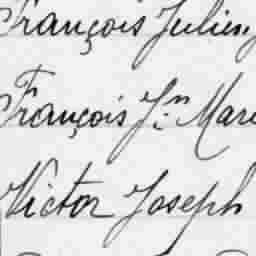 François Julien,
François Jn Mari
Victor Joseph